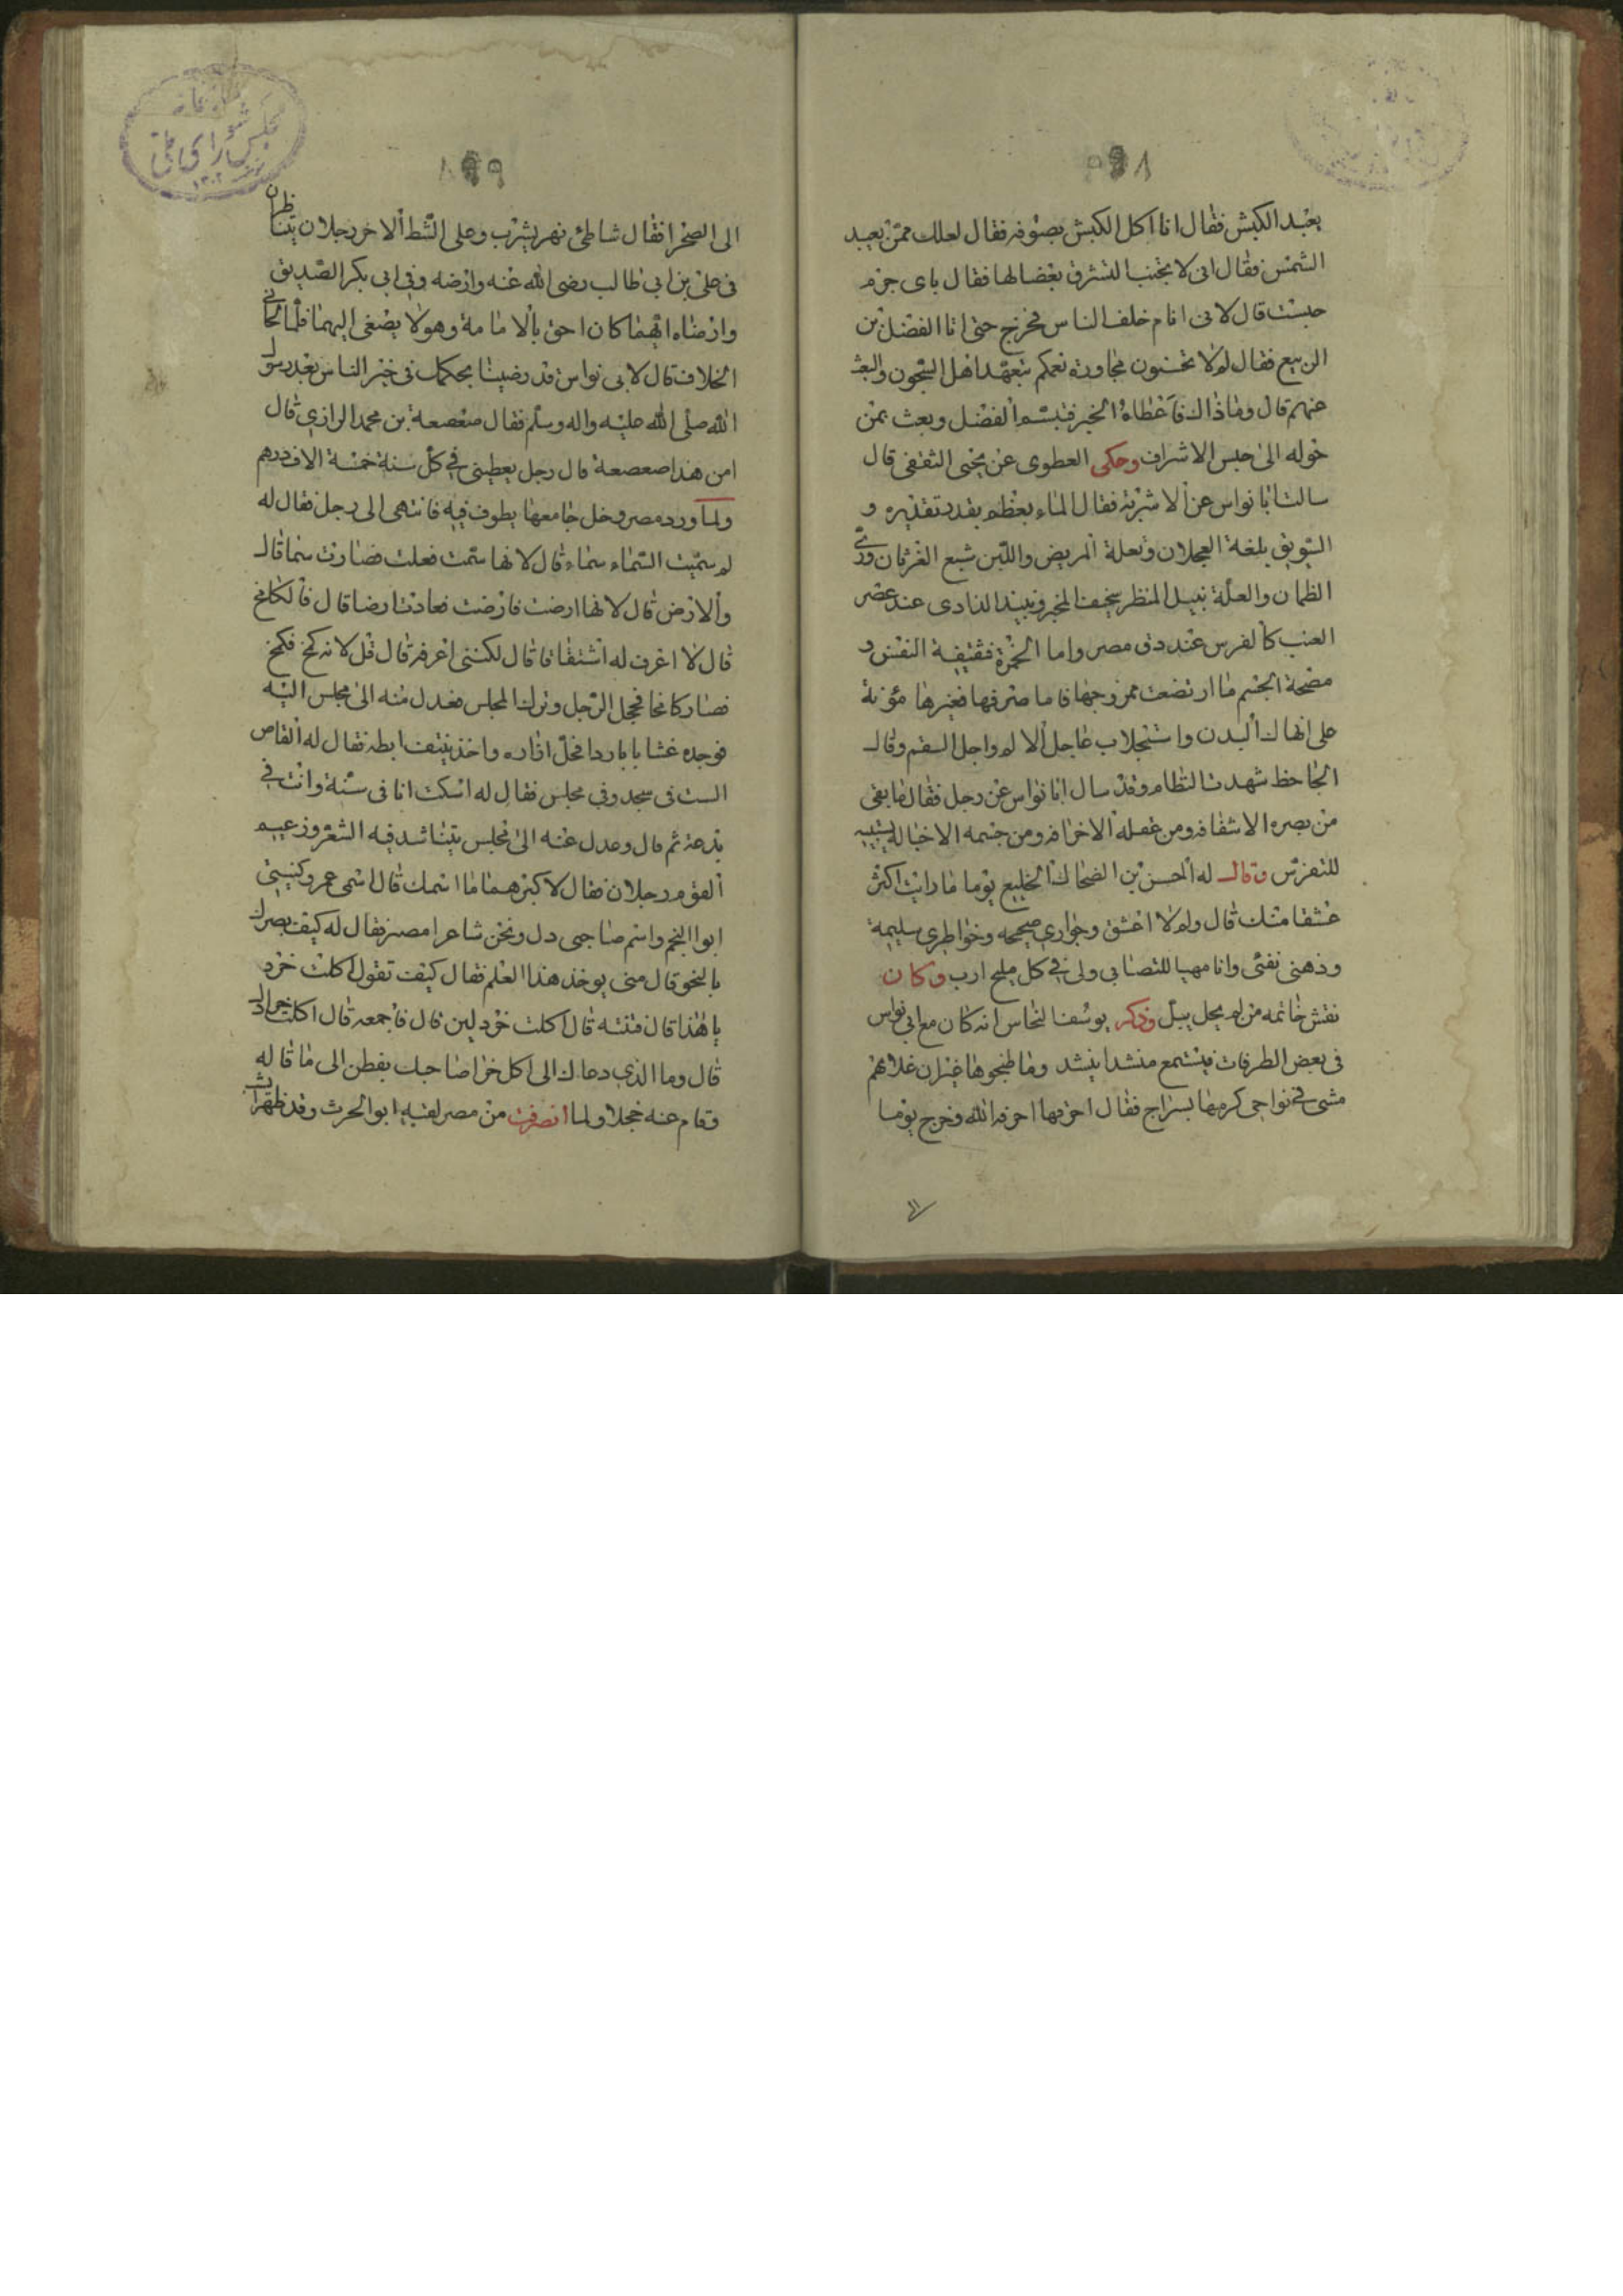 يعبد الكبش فقال انا اكل الكبش بصوفه فقال لعلك ممن يعبد
الشمس فقال انى لا بجنب الشرق بغضا لها فقال باى جرم
حبست قال لانى انام خلف الناس فخرج حتى اتا الفضل بن
الربيع فقال له لا تحسنون مجاورة نعمكم بتعهد اهل السجون والبعث
عنهم قال وما ذاك فاعطاه الخبر فتبسم الفضل وبعث بمن
حوله الى حبس الاشراف وحكى العطوى عن يحيى الثقفى قال
سالت ابا نواس عن الاشربة فقال الماء يعظم بقدر تقديره و
السويق بلغة العجلان وتعلة المريض واللبن شبع الغرثان ورى
الظمان والعلة نبيل المنظر سخيف المخبر ونبيذ الدادى عند عصر
العنب كالفرس عند دنى مصر واما الخمرة فقتيفة النفس و
مصحة الجسم ما ارتضعت ممزوجها فاما صرفها فغيرها مؤنة
على انهاك البدن واستجلاب عاجل الالم واجل السقم وقال
الجاحظ شهدت النظام وقد سال ابا نواس عن رجل فقال ما بقى
من بصره الا شفافه ومن عقله الا خرافه ومن جسمه الا خياله
للتفرس وقال له الحسن بن الضحاك الخليع يوما ما رايت اكثر
عشقا منك قال ولم لا اعشق وجوارى صحيحه وخواطرى سليمة
وذهنى نقى وانا مهيا للتصابى ولى فى كل مليح ارب وكان
نقش خاتمه من لم يحل يبل وذكر يوسف النحاس انه كان مع ابى نواس
فى بعض الطرقات فيستمع منشدا ينشد وما طبخوها غير ان غلامهم
مشى فى نواحى كرمها بسراج فقال احرقها احرقه الله وخرج يوما
٨٩٩
الى الصحرا فقال شاطئ نهر يشرب وعلى الشط الاخر رجلان يتناظران
فى على بن ابي طالب رضى الله عنه وارضه وفى ابى بكر الصديق
وارضاه ايهما كان احق بالامامة وهو لا يصغى اليهما فلما الحا فى
الخلاف قال لابى نواس قد رضينا بحكمك فى خير الناس بعد رسول
الله صلى الله عليه واله وسلم فقال صعصعة بن محمد الرازي قال
امن هذا صعصعة قال رجل يعطينى في كل سنة خمسة الاف درهم
ولما ورد مصر دخل جامعها يطوف فيه فانتهى الى رجل فقال له
لم سميت السماء سماء قال لانها سمت فعلت فصارت سما قال
والارض قال لانها ارضت فارضت فعادت ارضا قال فالكامخ
قال لا اعرف له اشتقاقا قال لكننى اعرفه قال قل لانه كمخ فكمخ
فصار كامخا فخجل الرجل وترك المجلس فعدل منه الى مجلس اليه
فوجده غشا بابا ردا فحل ازاره واخذ ينتف ابطه فقال له القاص
الست فى مسجد وفى مجلس فقال له اسكت انا فى سنة وانت فى
بدعة ثم مال وعدل عنه الى مجلس يتناشد فيه الشعر وزعيم
القوم رجلان فقال لاكبرهما ما اسمك قال اسمى عمرو كنيتى
ابو النجم واسم صاحبى دل ونحن شاعرا مصر فقال له كيف بصرك
بالنحو قال منى يوخذ هذا العلم فقال كيف تقول اكلت خرد
يا هذا قال فثنه قال اكلت خردلين قال فاجمعه قال اكلت خرال
قال وما الذي دعاك الى اكل خرا صاحبك بفطن الى ما قاله
وقام عنه خجلا ولما انصرفت من مصر لقيه ابو الحرث وقد ظهر اب